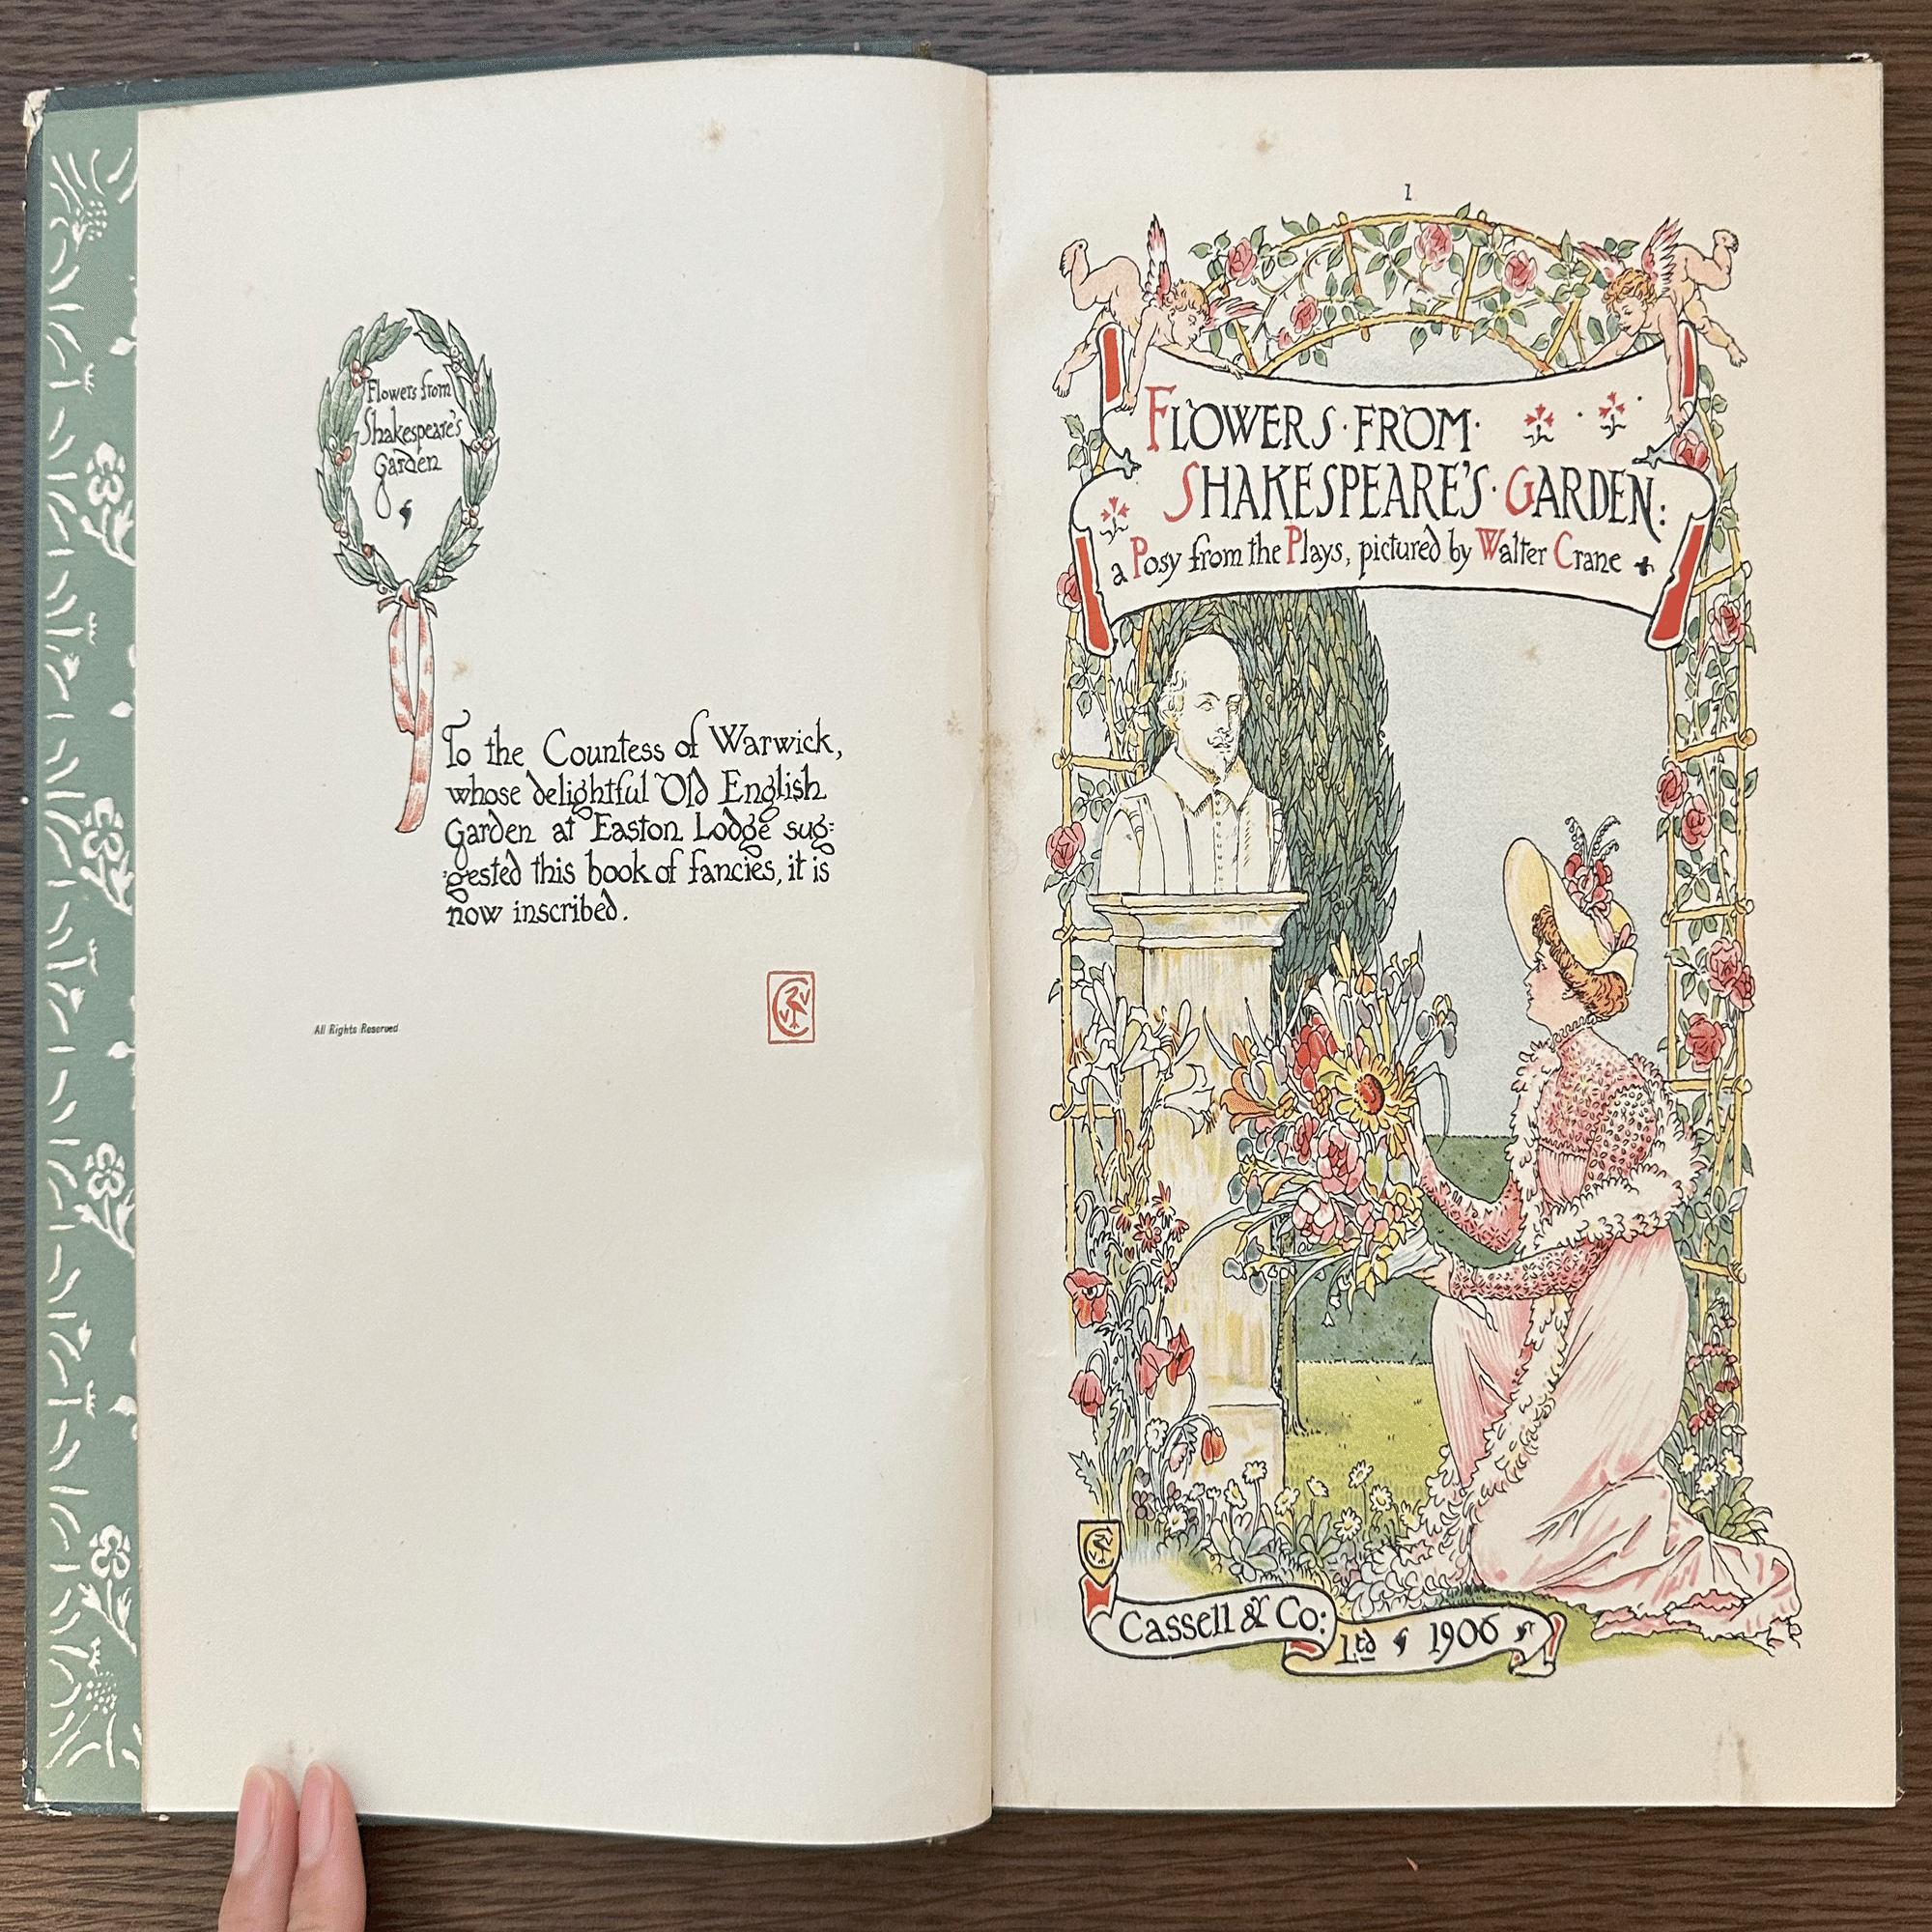 Flowers from
Shakespeare's
Garden
To the Countess of Warwick,
whose delightful Old English
Garden at Easton Lodge sug:
:gested this book of fancies, it is
now inscribed.
All Rights Reserved
1
FLOWERS · FROM ·
SHAKESPEARE'S · GARDEN:
a Posy from the Plays, pictured by Walter Crane
Cassell & Co:
Ltd 1906